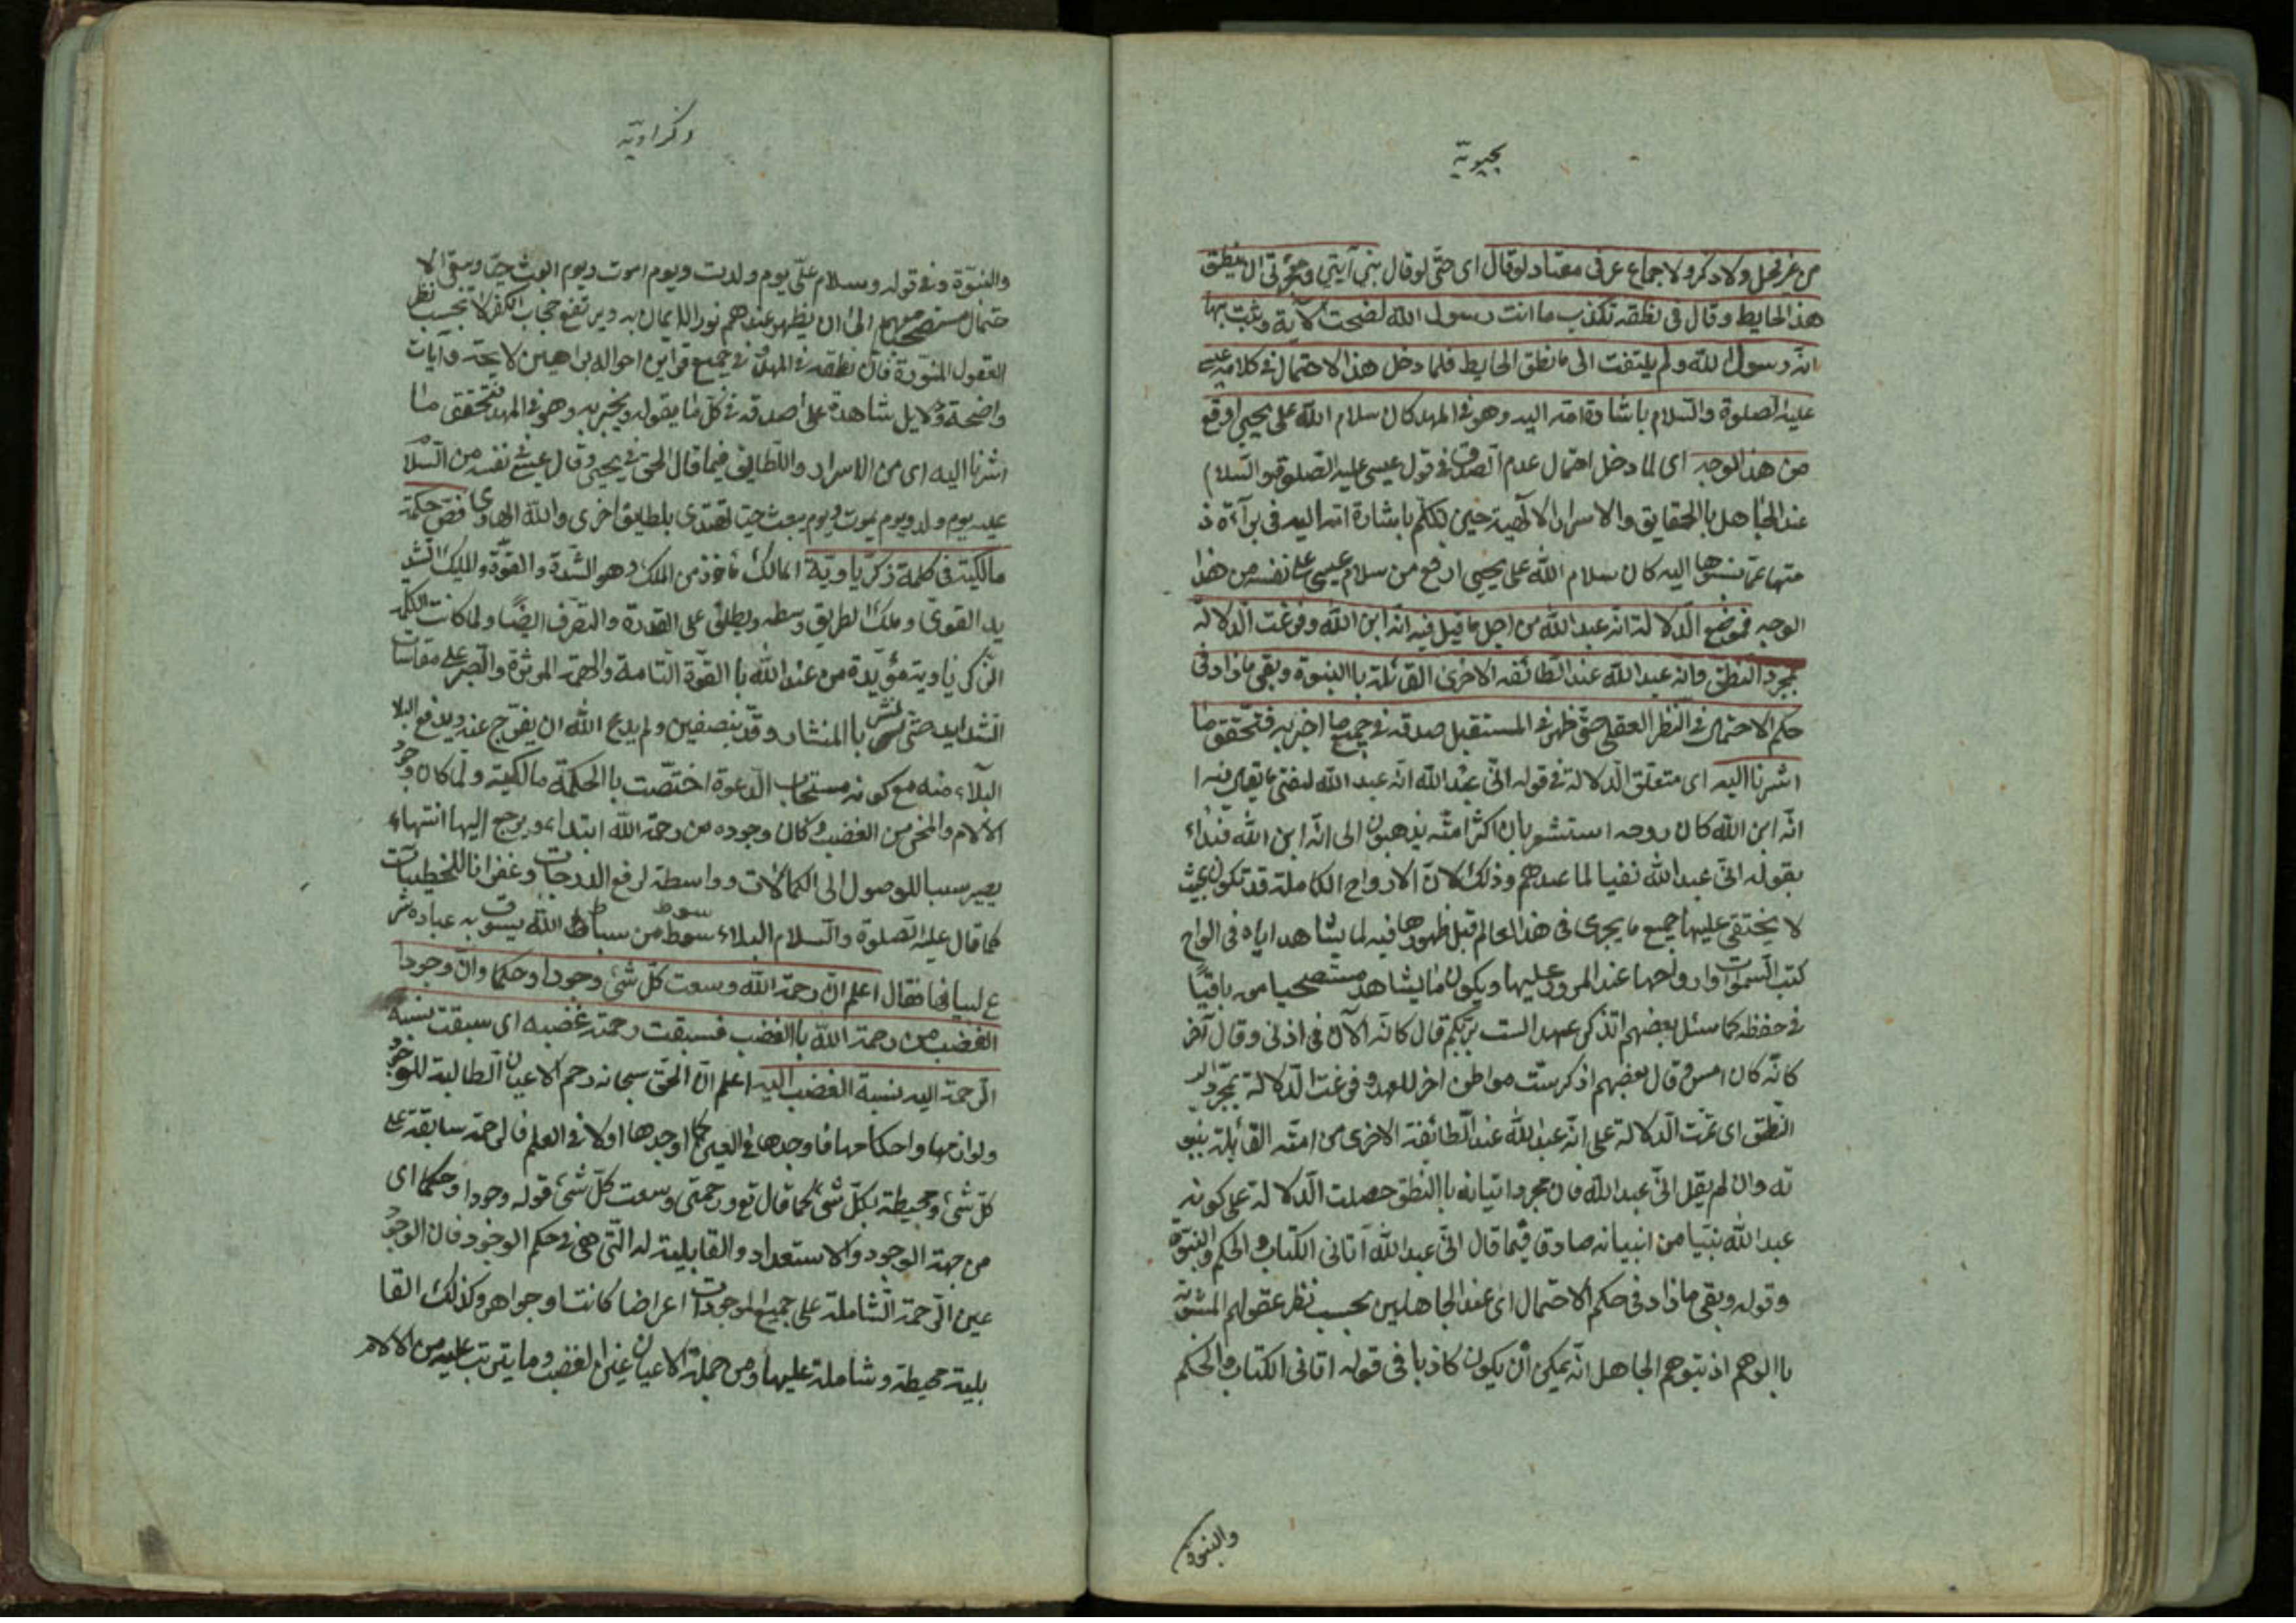 يحيوية
من غير فحل ولا ذكر ولا جماع عرفى معتاد لوقال اى حتى لوقال نبى آيتى ومعجزتى ان ينطق
هذا الحايط وقال فى نطقه تكذب ما انت رسول الله لضحت الآية وثبت بها
انه رسول الله ولم يلتفت الى ما نطق الحايط فلما دخل هذا الاحتمال فى كلام عيسى
عليه الصلوة والسلام باشارة امه اليه وهو فى المهد كان سلام الله على يحيى ارفع
من هذا الوجه اى لما دخل احتمال عدم الصدق فى قول عيسى عليه الصلوة والسلام
عند الجاهل باالحقايق والاسرار الالهية حين تكلم باشارة امه اليه فى برآءة ذ
متها عما نسبوها اليه كان سلام الله على يحيى ارفع من سلام عيسى على نفسه من هذا
الوجه فموضع الدلالة انه عبد الله من اجل ما قيل فيه انه ابن الله وفرغت الدلالة
بمجرد النطق وانه عبد الله عند الطائفه الاخرى القائلة باالنبوة وبقى ما زاد فى
حكم الاحتمال فى النظر العقلى حتى ظهر فى المستقبل صدقه فى جميع ما اخبر به فتحقق ما
اشرنا اليه اى متعلق الدلالة فى قوله انى عبد الله انه عبد الله لينفى ما يقال فيه ا
انه ابن الله كان روحه استشعر بان اكثر امته يذهبون الى انه ابن الله فبداء
بقوله انى عبد الله نفيا لما عندهم وذلك لان الارواح الكاملة قد تكون بحيث
لا يختفى عليها جميع ما يجرى فى هذا العالم قبل ظهورها فيه لما يشاهد اياه فى الواح
كتب السموات وارواحها عند المرور عليها ويكون ما يشاهد مستصحبا من باقيًا
فى حفظه كما سئل بعضهم اتذكر عهد الست بربكم قال كانه الآن فى اذنى وقال آخر
كانه كان امس وقال بعضهم اذكر ست مواطن اخر للعهد وفرغت الدلالة بمجرد
النطق اى تمت الدلالة على انه عبد الله عند الطائفة الاخرى من امته القائلة بنبو
ته وان لم يقل انى عبد الله فان مجرد اتيانه باالنطق حصلت الدلالة على كونه
عبد الله نبيا من انبيائه صادقا فيما قال انى عبد الله آتانى الكتاب والحكم والنبوة
وقوله وبقى ما زاد فى حكم الاحتمال اى عند الجاهلين بحسب نظر عقولهم المشوبة
باالوهم اذ يتوهم الجاهل انه يمكن ان يكون كاذبا فى قوله اتانى الكتاب والحكم
والنبوة
ذكراوية
والنبوة وفى قوله وسلام على يوم ولدت ويوم اموت ويوم ابعث حيا ويبقى الا
حتمال مستصحبا معهم الى ان يظهر عندهم نور الايمان به ويرتفع حجاب الكفر لا بحسب نظر
العقول المنورة فان نطقه فى المهد وفى جميع قراين احواله براهين لايحة وآيات
واضحة ودلايل شاهدة على صدقه فى كل ما يقوله ويخبر به وهو فى المهد فتحقق ما ا
اشرنا اليه اى من الاسرار واللطايف فيما قال الحق فى يحيى وقال عيسى فى نفسه من السلام
عليه يوم ولد ويوم يموت ويوم يبعث حيا تهتدى بلطايق اخرى والله الهادى فص حكمة
مالكية فى كلمة زكرياوية المالك مأخوذ من الملك وهو الشدة والقوة والمليك الشد
يد القوى وملك الطريق وسطه ويطلق على القدرة والتصرف ايضًا ولما كانت الكلمة
الزكرياوية مؤيدة من عند الله باالقوة التامة والهمة الموثرة والصبر على مقاسات
الشدايد حتى نشر باالمنشار وقد بنصفين ولم يدع الله ان يفرج عنه ويدفع البلا
البلآء منه مع كونه مستجاب الدعوة اختصت باالحكمة مالكية ولما كان وجود
الآلام والمحن من الغضب وكان وجوده من رحمة الله ابتداء ويرجع اليها انتهاء
يصير سببا للوصول الى الكمالات وواسطة لرفع الدرجات وغفرانا للخطيئات
كما قال عليه الصلوة والسلام البلاء سوط من سياط الله يسوق به عباده شر
ع لبيانها فقال اعلم ان رحمة الله وسعت كل شئ وجودا وحكما وان وجودا
الغضب من رحمة الله باالغضب فسبقت رحمته غضبه اى سبقت نسبة
الرحمة اليه نسبة الغضب اليه اعلم ان الحق سبحانه رحم الاعيان الطالبة للوجود
ولوازمها واحكامها فاوجدها فى العين كما اوجدها اولا فى العلم فالرحمة سابقة على
كل شئ ومحيطة بكل شئ كما قال تع ورحمتى وسعت كل شئ قوله وجودا وحكما اى
من جهة الوجود والاستعداد والقابلية له التى هى فى حكم الوجود فان الوجود
عين الرحمة الشاملة على جميع الموجودات اعراضا كانت او جواهر وكذلك القا
بلية محيطة وشاملة عليها ومن جملة الاعيان عين الغضب وما يترتب عليه من الآلام